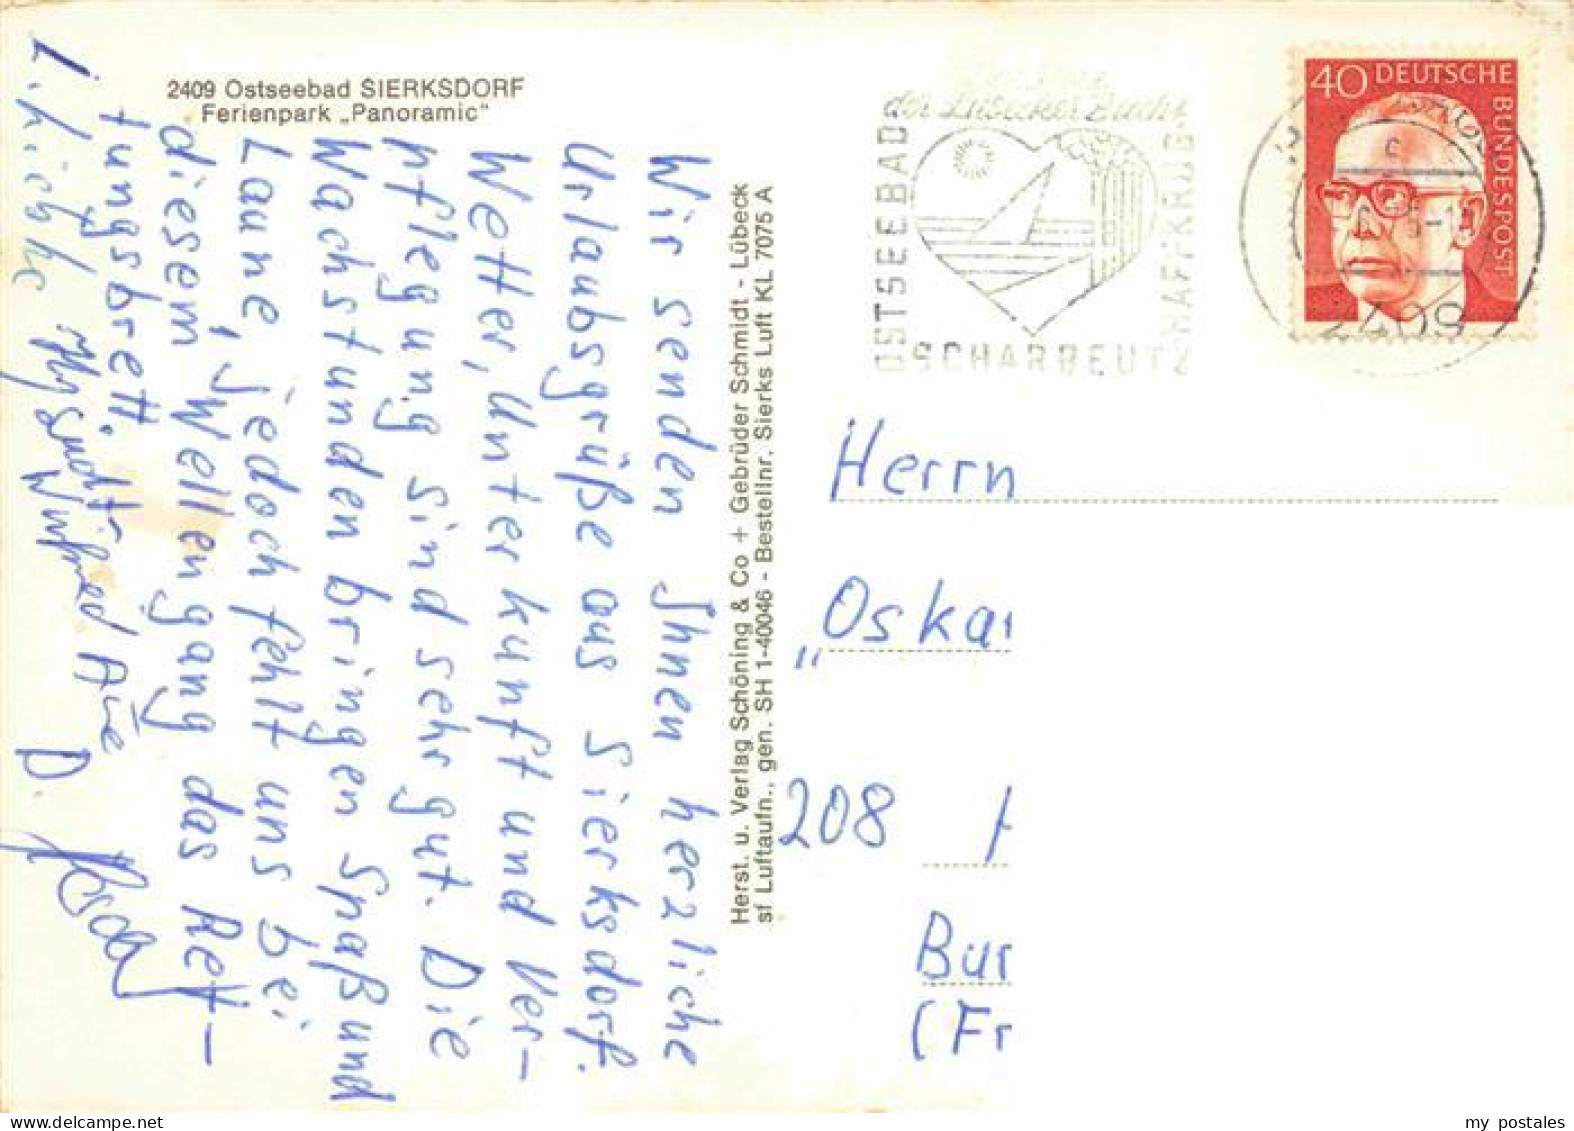 2409 Ostseebad SIERKSDORF
Ferienpark „Panoramic“
Wir senden Ihnen herzliche
Urlaubsgrüße aus Sierksdorf.
Wetter, Unterkunft und Ver-
pflegung sind sehr gut. Die
Wachstunden bringen Spaß und
Laune, jedoch fehlt uns bei
diesem „Wellengang das Ret-
tungsbrett.
D.
Herst. u. Verlag Schöning & Co + Gebrüder Schmidt - Lübeck
sf Luftaufn., gen. SH 1-40046 - Bestellnr. Sierks Luft KL 7075 A
der Lübecker Bucht
OSTSEEBAD
SCHARBEUTZ
HAFFKRUG
40 DEUTSCHE
BUNDESPOST
2409
Herrn
„Oskar
208
Bur
(Fr
my postales